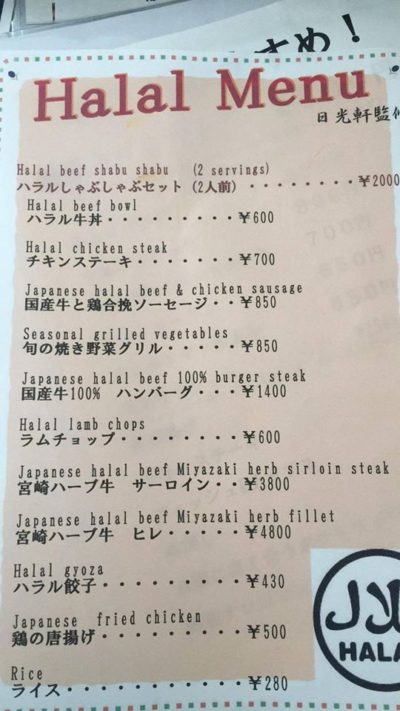 すめ！
Halal Menu
日光軒監修
Halal beef shabu shabu (2 servings)
ハラルしゃぶしゃぶセット (2人前) ・・・・・・・・￥2000
Halal beef bowl
ハラル牛丼・・・・・・・・・￥600
Halal chicken steak
チキンステーキ・・・・・・・￥700
Japanese halal beef & chicken sausage
国産牛と鶏合挽ソーセージ・・￥850
Seasonal grilled vegetables
旬の焼き野菜グリル・・・・・￥850
Japanese halal beef 100% burger steak
国産牛100% ハンバーグ・・・￥1400
Halal lamb chops
ラムチョップ・・・・・・・・￥600
Japanese halal beef Miyazaki herb sirloin steak
宮崎ハーブ牛 サーロイン・・￥3800
Japanese halal beef Miyazaki herb fillet
宮崎ハーブ牛 ヒレ・・・・・￥4800
Halal gyoza
ハラル餃子・・・・・・・・・￥430
Japanese fried chicken
鶏の唐揚げ・・・・・・・・・￥500
Rice
ライス・・・・・・・・・・・￥280
حلال
HALA